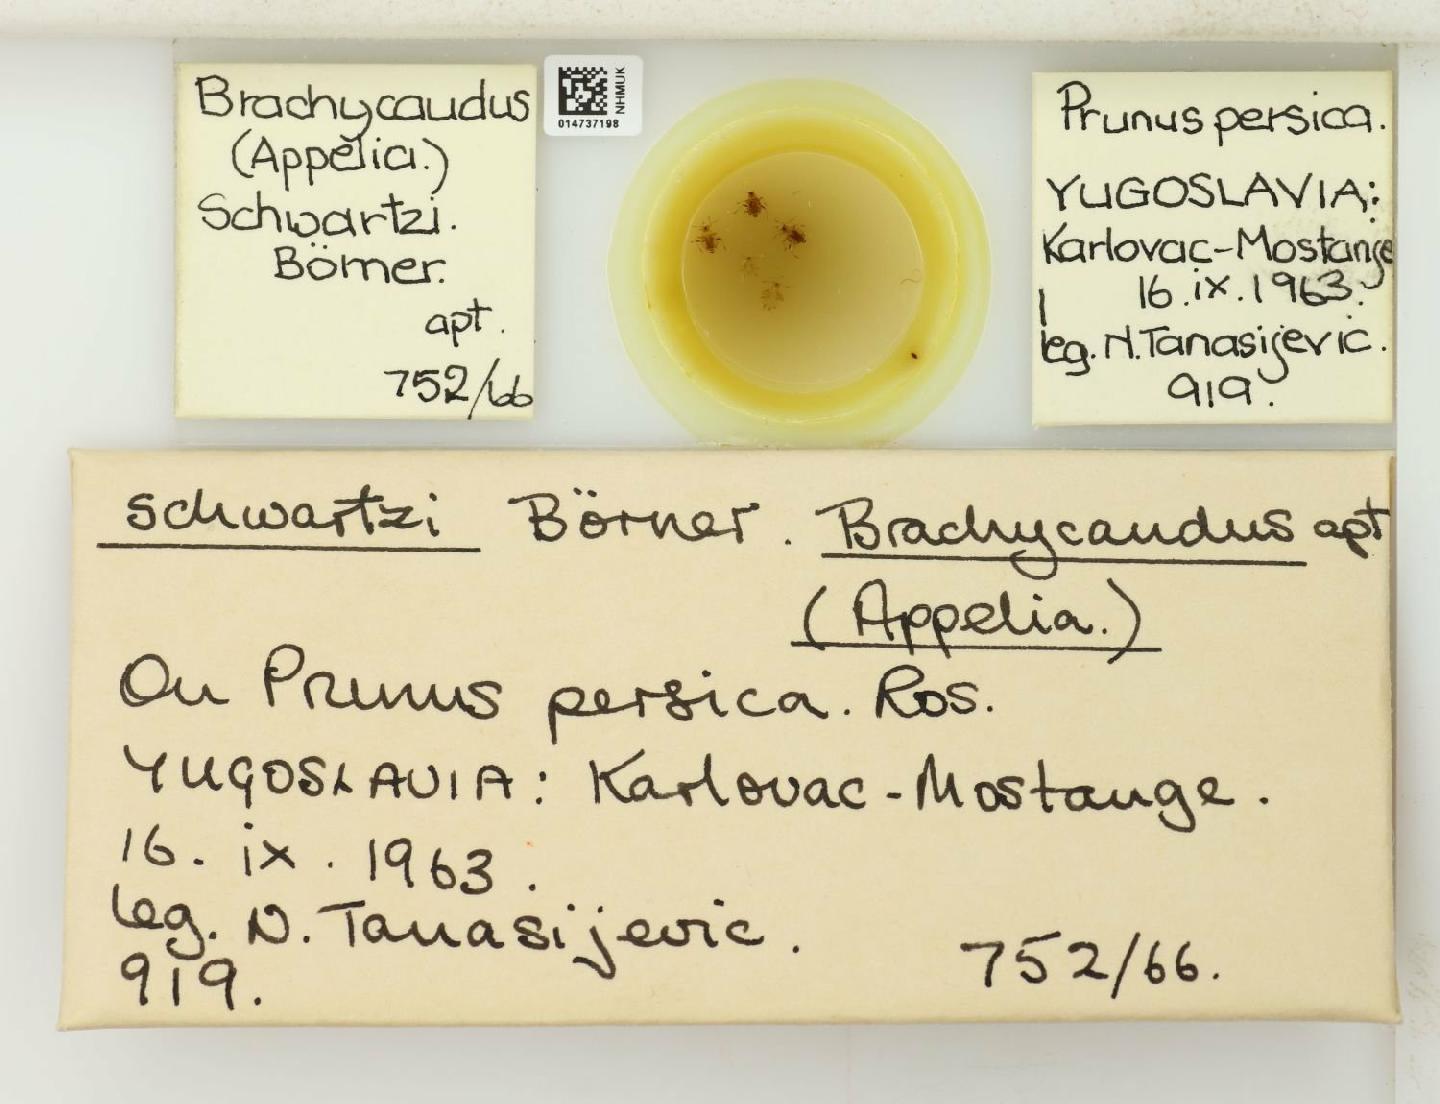 Brachycaudus
(Appelia.)
Schwartzi.
Börner.
apt.
752/66
NHMUK
014737198
Prunus persica.
YUGOSLAVIA:
Karlovac-Mostange
16.ix.1963.
leg. N. Tanasijevic.
919.
schwartzi Börner. Brachycaudus apt
(Appelia.)
On Prunus persica. Ros.
YUGOSLAVIA: Karlovac-Mostange.
16. ix. 1963.
leg. N. Tanasijevic.
919. 752/66.